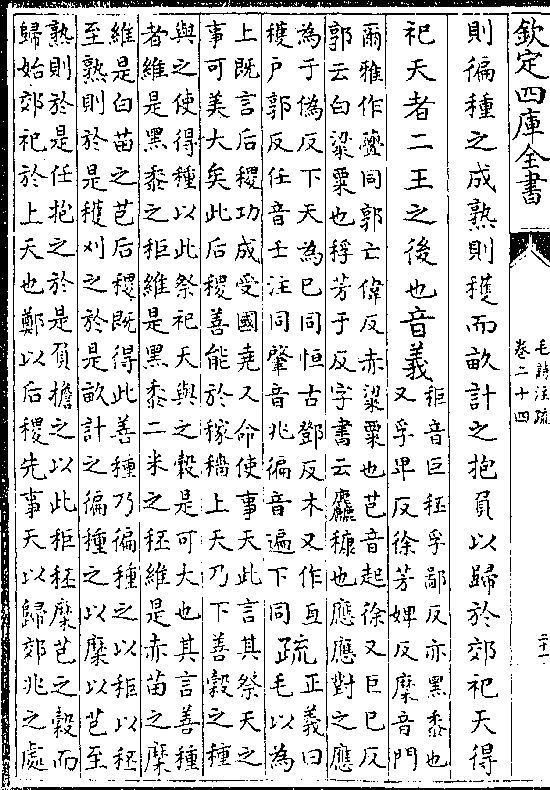 欽定四庫全書
毛詩注疏
卷二十四
二十一
則徧種之成熟則穫而畝計之抱負以歸於郊祀天得
祀天者二王之後也音義
秬音巨秠孚鄙反亦黑黍也
又孚卑反徐芳婢反穈音門
爾雅作虋同郭亡偉反赤粱粟也芑音起徐又巨巳反
郭云白粱粟也稃芳于反字書云麤糠也應應對之應
為于偽反下天為已同恒古鄧反本又作亙
穫戶郭反任音壬注同肇音兆徧音遍下同
疏
正義曰
毛以為
上既言后稷功成受國堯又命使事天此言其祭天之
事可美大矣此后稷善能於稼穡上天乃下善穀之種
與之使得種以此祭祀天與之穀是可大也其言善種
者維是黑黍之秬維是黑黍二米之秠維是赤苗之穈
維是白苗之芑后稷既得此善種乃徧種之以秬以秠
至熟則於是穫刈之於是畝計之徧種之以穈以芑至
熟則於是任抱之於是負擔之以此秬秠穈芑之穀而
歸始郊祀於上天也鄭以后稷先事天以歸郊兆之處